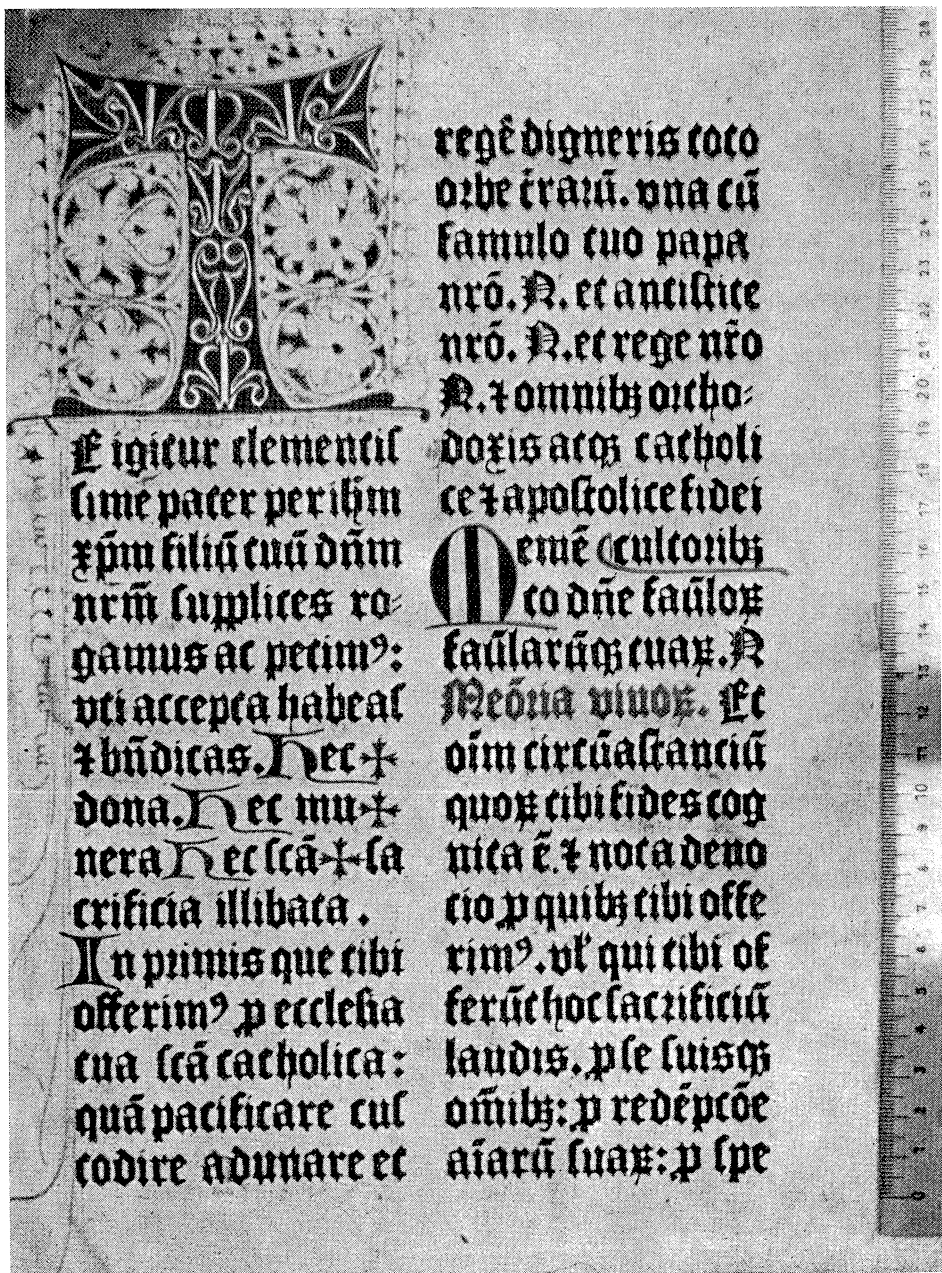 T
E igitur clementis
sime pater per ihm̄
xp̄m filiū tuū dn̄m
nrm̄ supplices ro-
gamus ac petimꝰ:
vti accepta habeas
⁊ bn̄dicas. Hec ✠
dona. Hec mu ✠
nera Hec scā ✠ sa
crificia illibata.
In primis que tibi
offerimꝰ ꝓ ecclesia
tua scā catholica:
quā pacificare cus
todire adunare et
regē digneris toto
orbe t̄rarū. vna cū
famulo tuo papa
nrō. N. et antistite
nrō. N. et rege nr̄o
N. ⁊ omnibꝫ ortho-
doxis atqꝫ catholi
ce ⁊ apostolice fidei
cultoribꝫ
Memē
to dn̄e faūloꝝ
faūlarūqꝫ tuaꝝ. N
Meōria viuoꝝ. Et
oīm circūastanciū
quoꝝ tibi fides cog
nita ē. ⁊ nota deuo
cio ꝓ quibꝫ tibi offe
rimꝰ. vl̓ qui tibi of
ferūt hoc sacrificiū
laudis. ꝓ se suisqꝫ
om̄ibꝫ: ꝓ redēpcōe
aīarū suaꝝ: ꝓ spe
0 1 2 3 4 5 6 7 8 9 10 11 12 13 14 15 16 17 18 19 20 21 22 23 24 25 26 27 28 29